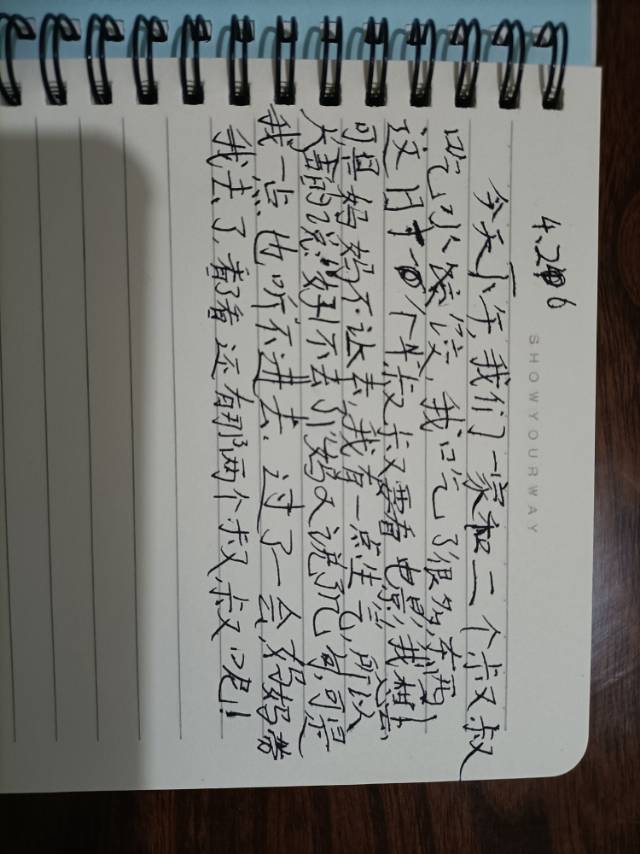 SHOWYOURWAY
4.26
今天下午,我们一家和二个叔叔
吃水饺,我吃了很多东西,
这时一个叔叔又要看电影,我想去,
可是妈妈不让去,我有一点生气,所以
大声的说:"好!不去!"妈又说了几句,可是
我一点也听不进去.过了一会,妈妈带
我去了,看着还有那两个叔叔呢!